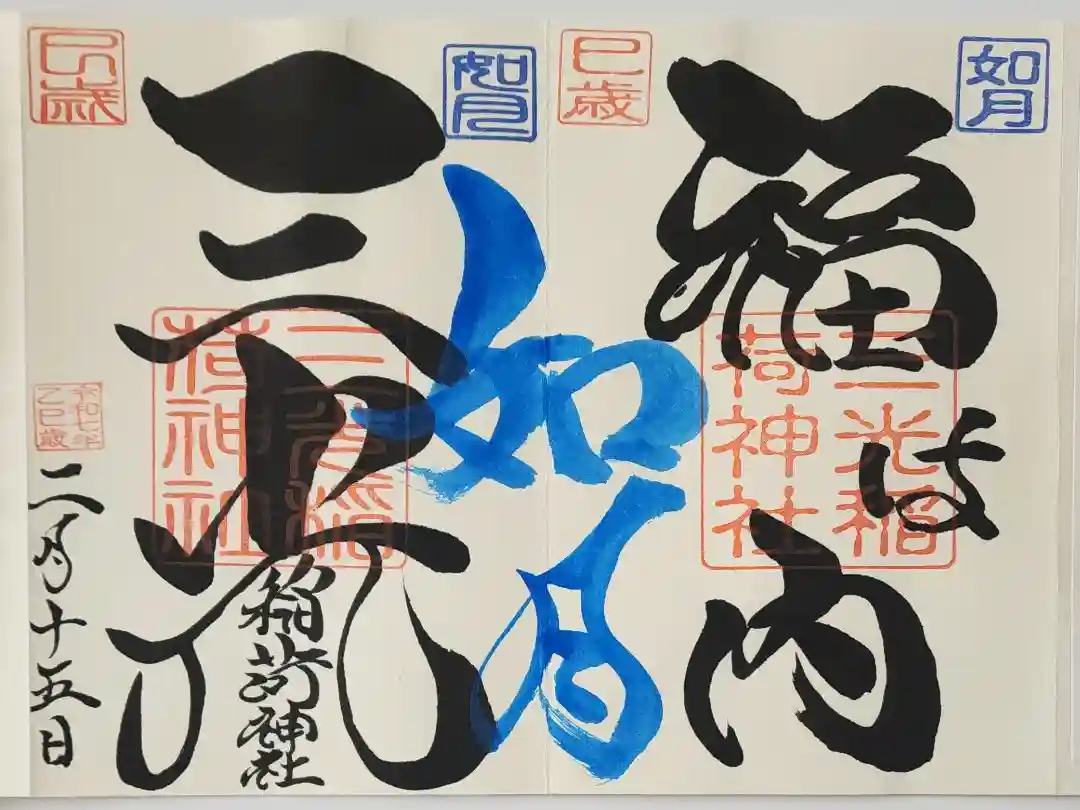 如月
福は内
三光稲
荷神社
巳歳
如月
如月
三光
稲荷神社
三光稲
荷神社
巳歳
令和七年
乙巳歳
二月十五日